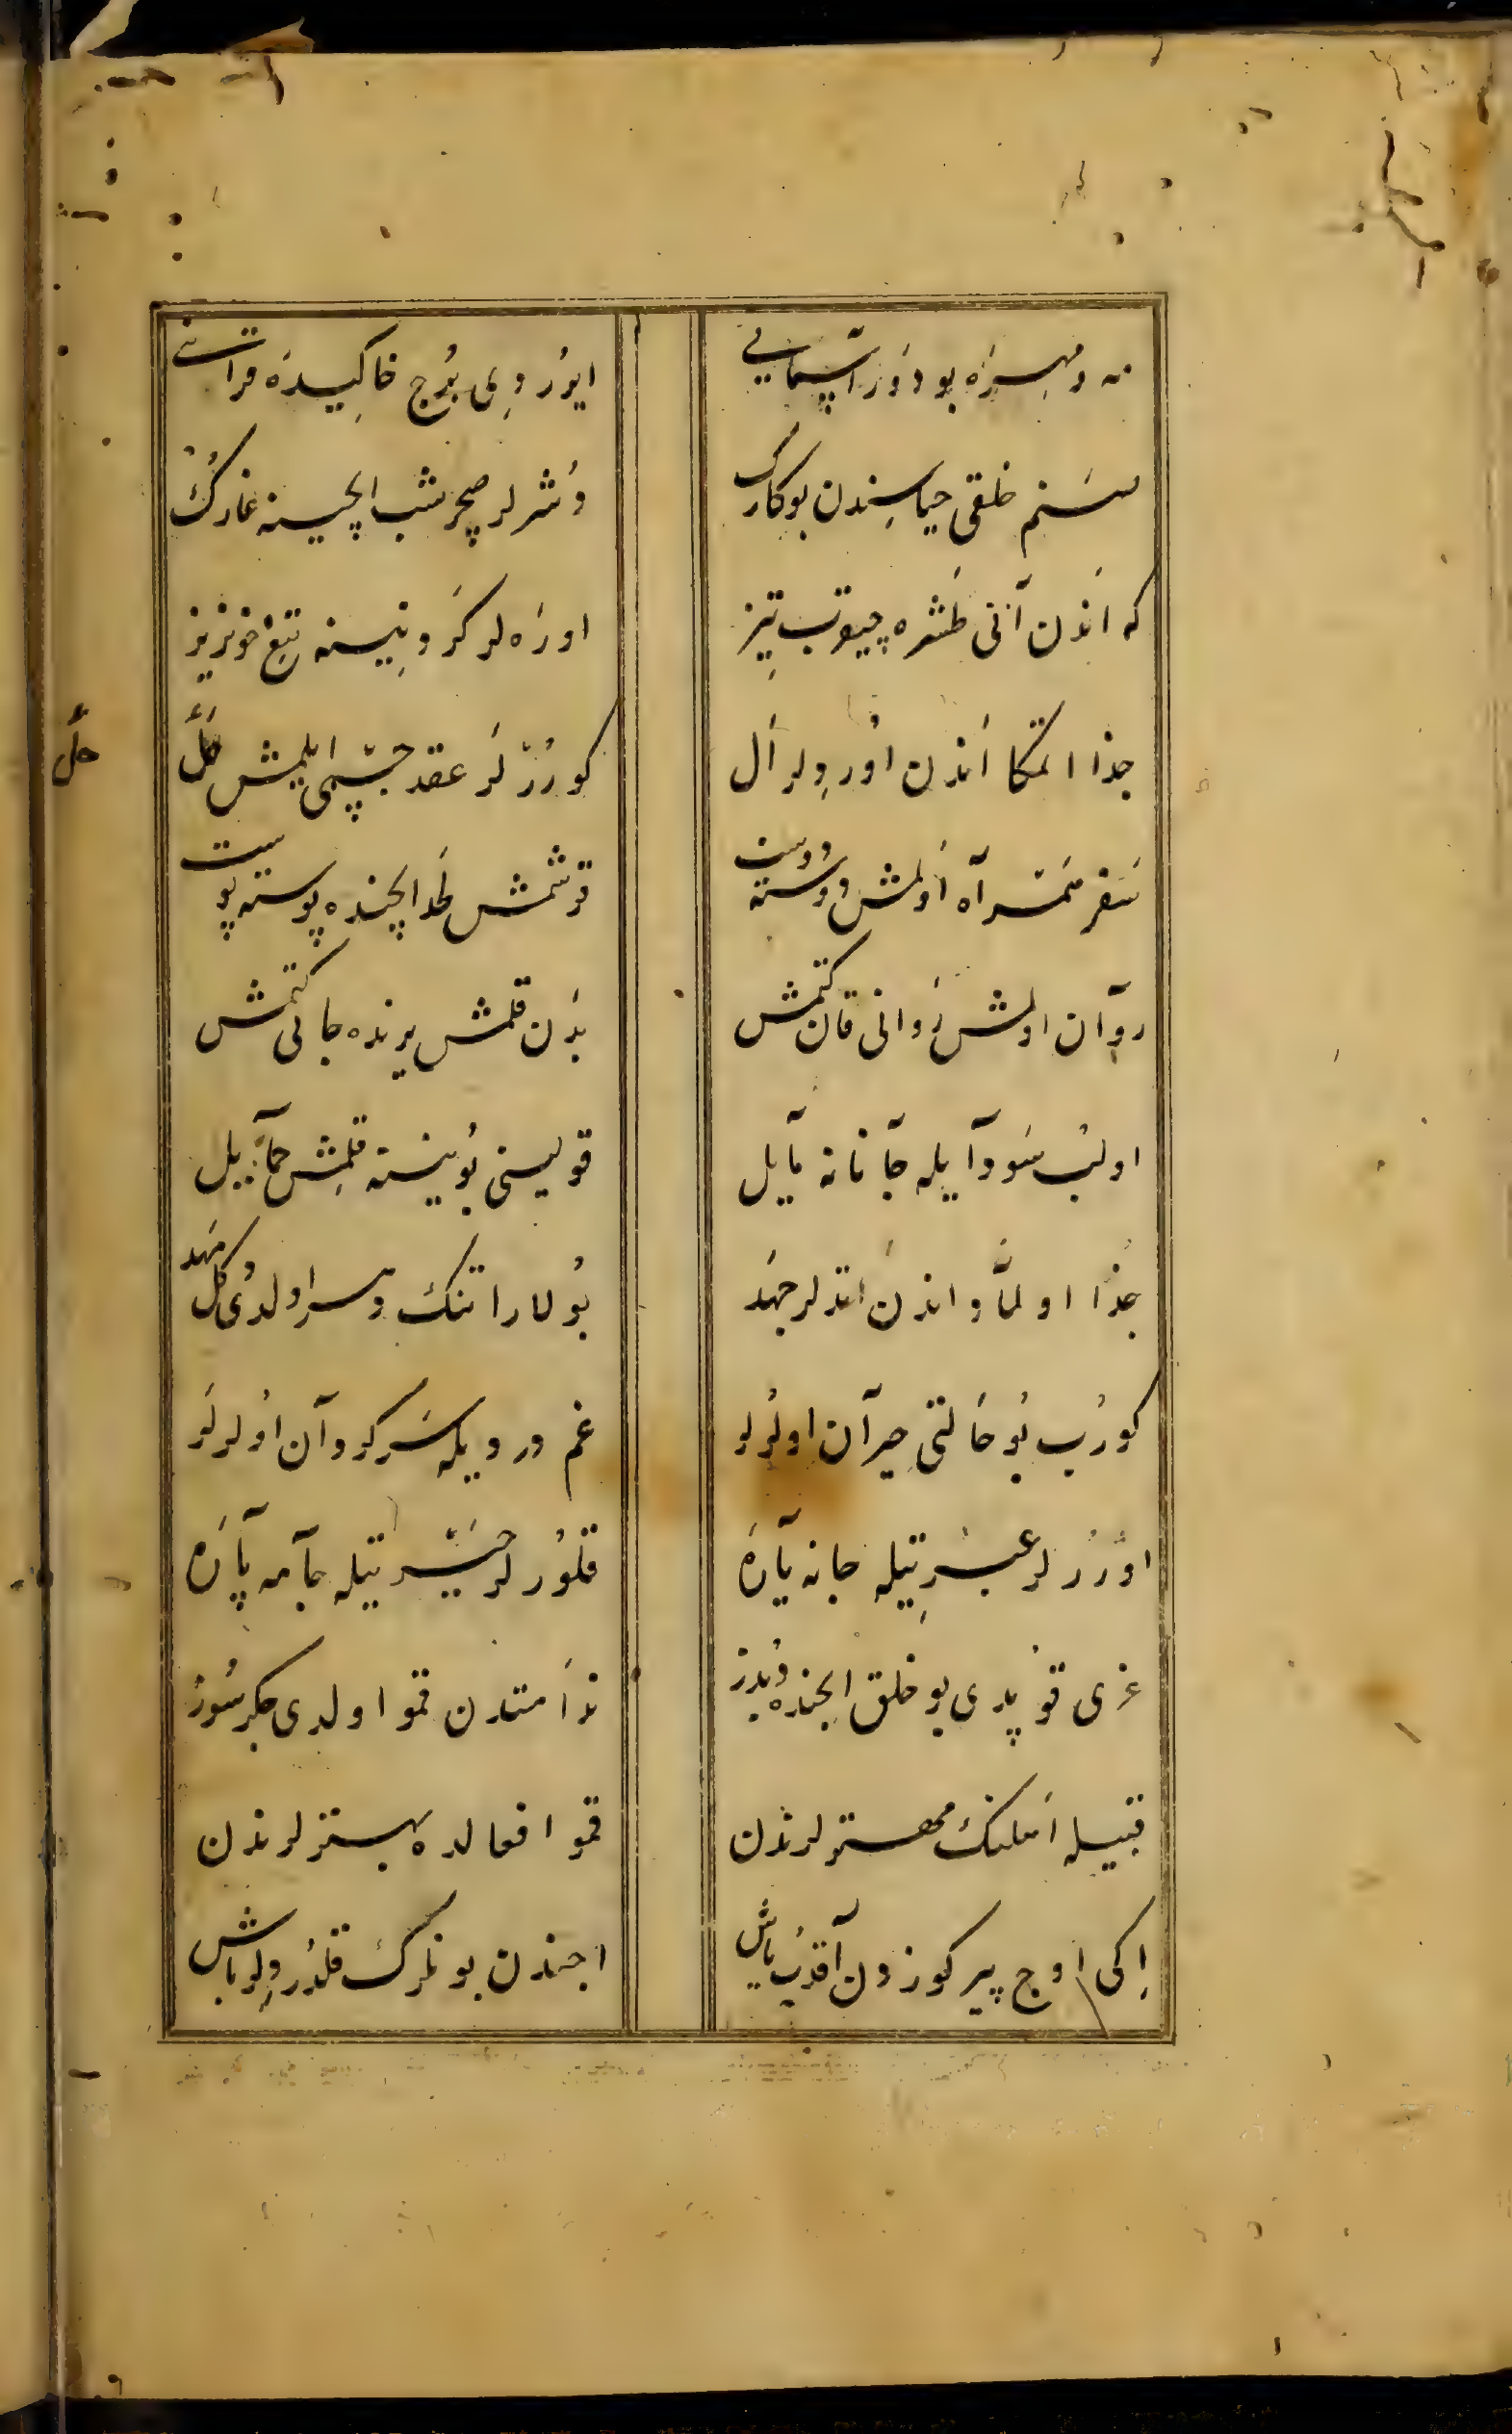 مه و مهره بو دور آسمانی ایردی برج خاکیده قرانی
صنم خلقی حیاسندن بو کارک دشرلر صحر شب ایچینه غارک
که اندن آنی طشره چیقرب تیز اوره‌لر کردنینه تیغ خونریز
جدا اتمکا اندن اوردلر ال کوررلر عقد جسمی ایلمش حل
حل
سفر همراه اولمش دوسته دوست قوشمش لحد ایچنده پوسته پوست
روان اولمش روانی قان کتمش بدن قلمش یرنده جانی کتمش
اولب سودا یله جانانه مایل قولینی بوینینه قلمش حمایل
جدا اولماق‌دن اندن اتدلر جهد بولارا تنک و سر اولدی کل مهد
کورب بو حالتی حیران اولرلر غم درد یله سرکردان اولرلر
اوررلر عبرتیله جانه یاره قلورلر حسرتیله جامه پاره
غری قوپدی بو خلق ایچنده دلدز ندامتدن قمو اولدی جکر سوز
قبیله اهلنک مهترلرندن قمو افعالده بهترلرندن
ایکی اوج پیر کوزدن آقدب یاش اچندن بونلرک قلدردلر باش